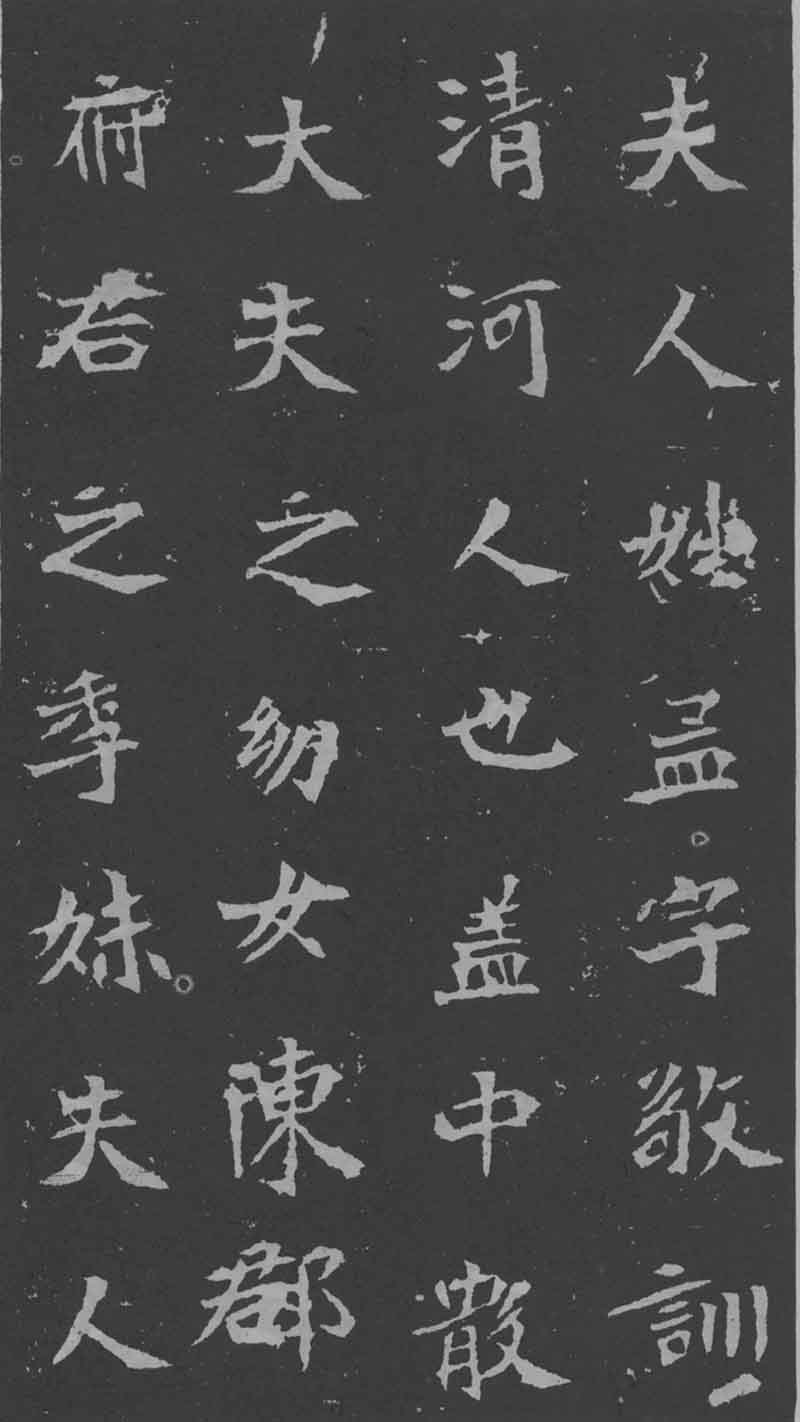 夫人姓孟。字敬訓
清河人也盖中散
大夫之幼女陳郡
府君之季妹。夫人